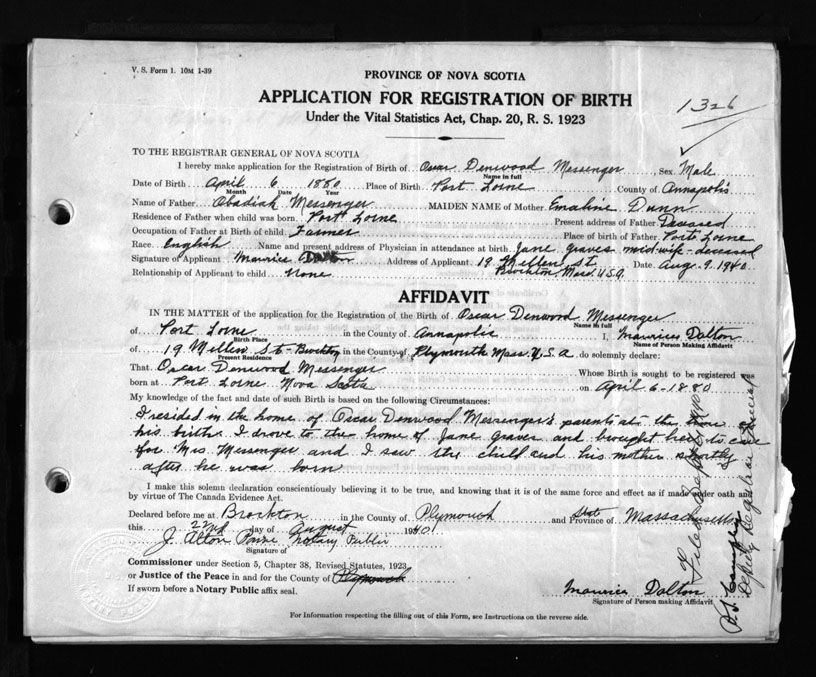 V. S. Form 1. 10M 1-39
PROVINCE OF NOVA SCOTIA
APPLICATION FOR REGISTRATION OF BIRTH
1326
Under the Vital Statistics Act, Chap. 20, R. S. 1923
TO THE REGISTRAR GENERAL OF NOVA SCOTIA
I hereby make application for the Registration of Birth of Oscar Denwood Messenger, Sex Male
Name in full
Date of Birth April 6 1880 Place of Birth Port Lorne County of Annapolis
Month Date Year
Name of Father Obadiah Messenger MAIDEN NAME of Mother Dunn
Residence of Father when child was born Port Lorne Present address of Father Deceased
Occupation of Father at Birth of child Farmer Place of birth of Father Port Lorne
Race English Name and present address of Physician in attendance at birth Jane Graves midwife - deceased
Signature of Applicant Maurice Dalton Address of Applicant 19 Mellen St. Date Aug. 9, 1940
Relationship of Applicant to child None Brockton, Mass. U.S.A.
AFFIDAVIT
IN THE MATTER of the application for the Registration of the Birth of Oscar Denwood Messenger
Name in full
of Port Lorne in the County of Annapolis I, Maurice Dalton
Birth Place Name of Person Making Affidavit
of 19 Mellen St - Brockton in the County of Plymouth Mass. U.S.A. do solemnly declare:
Present Residence
That Oscar Denwood Messenger Whose Birth is sought to be registered was
born at Port Lorne Nova Scotia on April 6 - 1880
My knowledge of the fact and date of such Birth is based on the following Circumstances:
I resided in the home of Oscar Denwood Messenger's parents at the time of
his birth. I drove to the home of Jane Graves and brought her to care
for Mrs. Messenger and I saw the child and his mother shortly
after he was born
I make this solemn declaration conscientiously believing it to be true, and knowing that it is of the same force and effect as if made under oath and
by virtue of The Canada Evidence Act.
Declared before me at Brockton in the County of Plymouth and State Province of Massachusetts
this 22nd day of August 1940
J. Alton Notary Public
Signature of
Commissioner under Section 5, Chapter 38, Revised Statutes, 1923
or Justice of the Peace in and for the County of Plymouth
If sworn before a Notary Public affix seal.
Maurice Dalton
Signature of Person making Affidavit
For Information respecting the filling out of this Form, see Instructions on the reverse side.
Filed
Deputy Registrar General